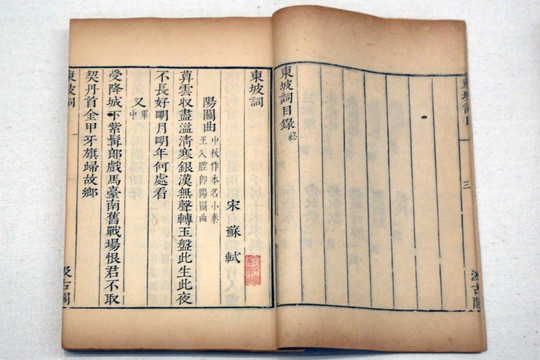 東坡詞目 三 汲古閣
東坡詞目錄 終
東坡詞
宋 蘇軾
陽關曲 中秋作本名小秦王入腔即陽關曲
暮雲收盡溢清寒銀漢無聲轉玉盤此生此夜
不長好明月明年何處看
又 軍中
受降城下紫髯郎戲馬臺南舊戰場恨君不取
契丹首金甲牙旗歸故鄉
東坡詞 汲古閣